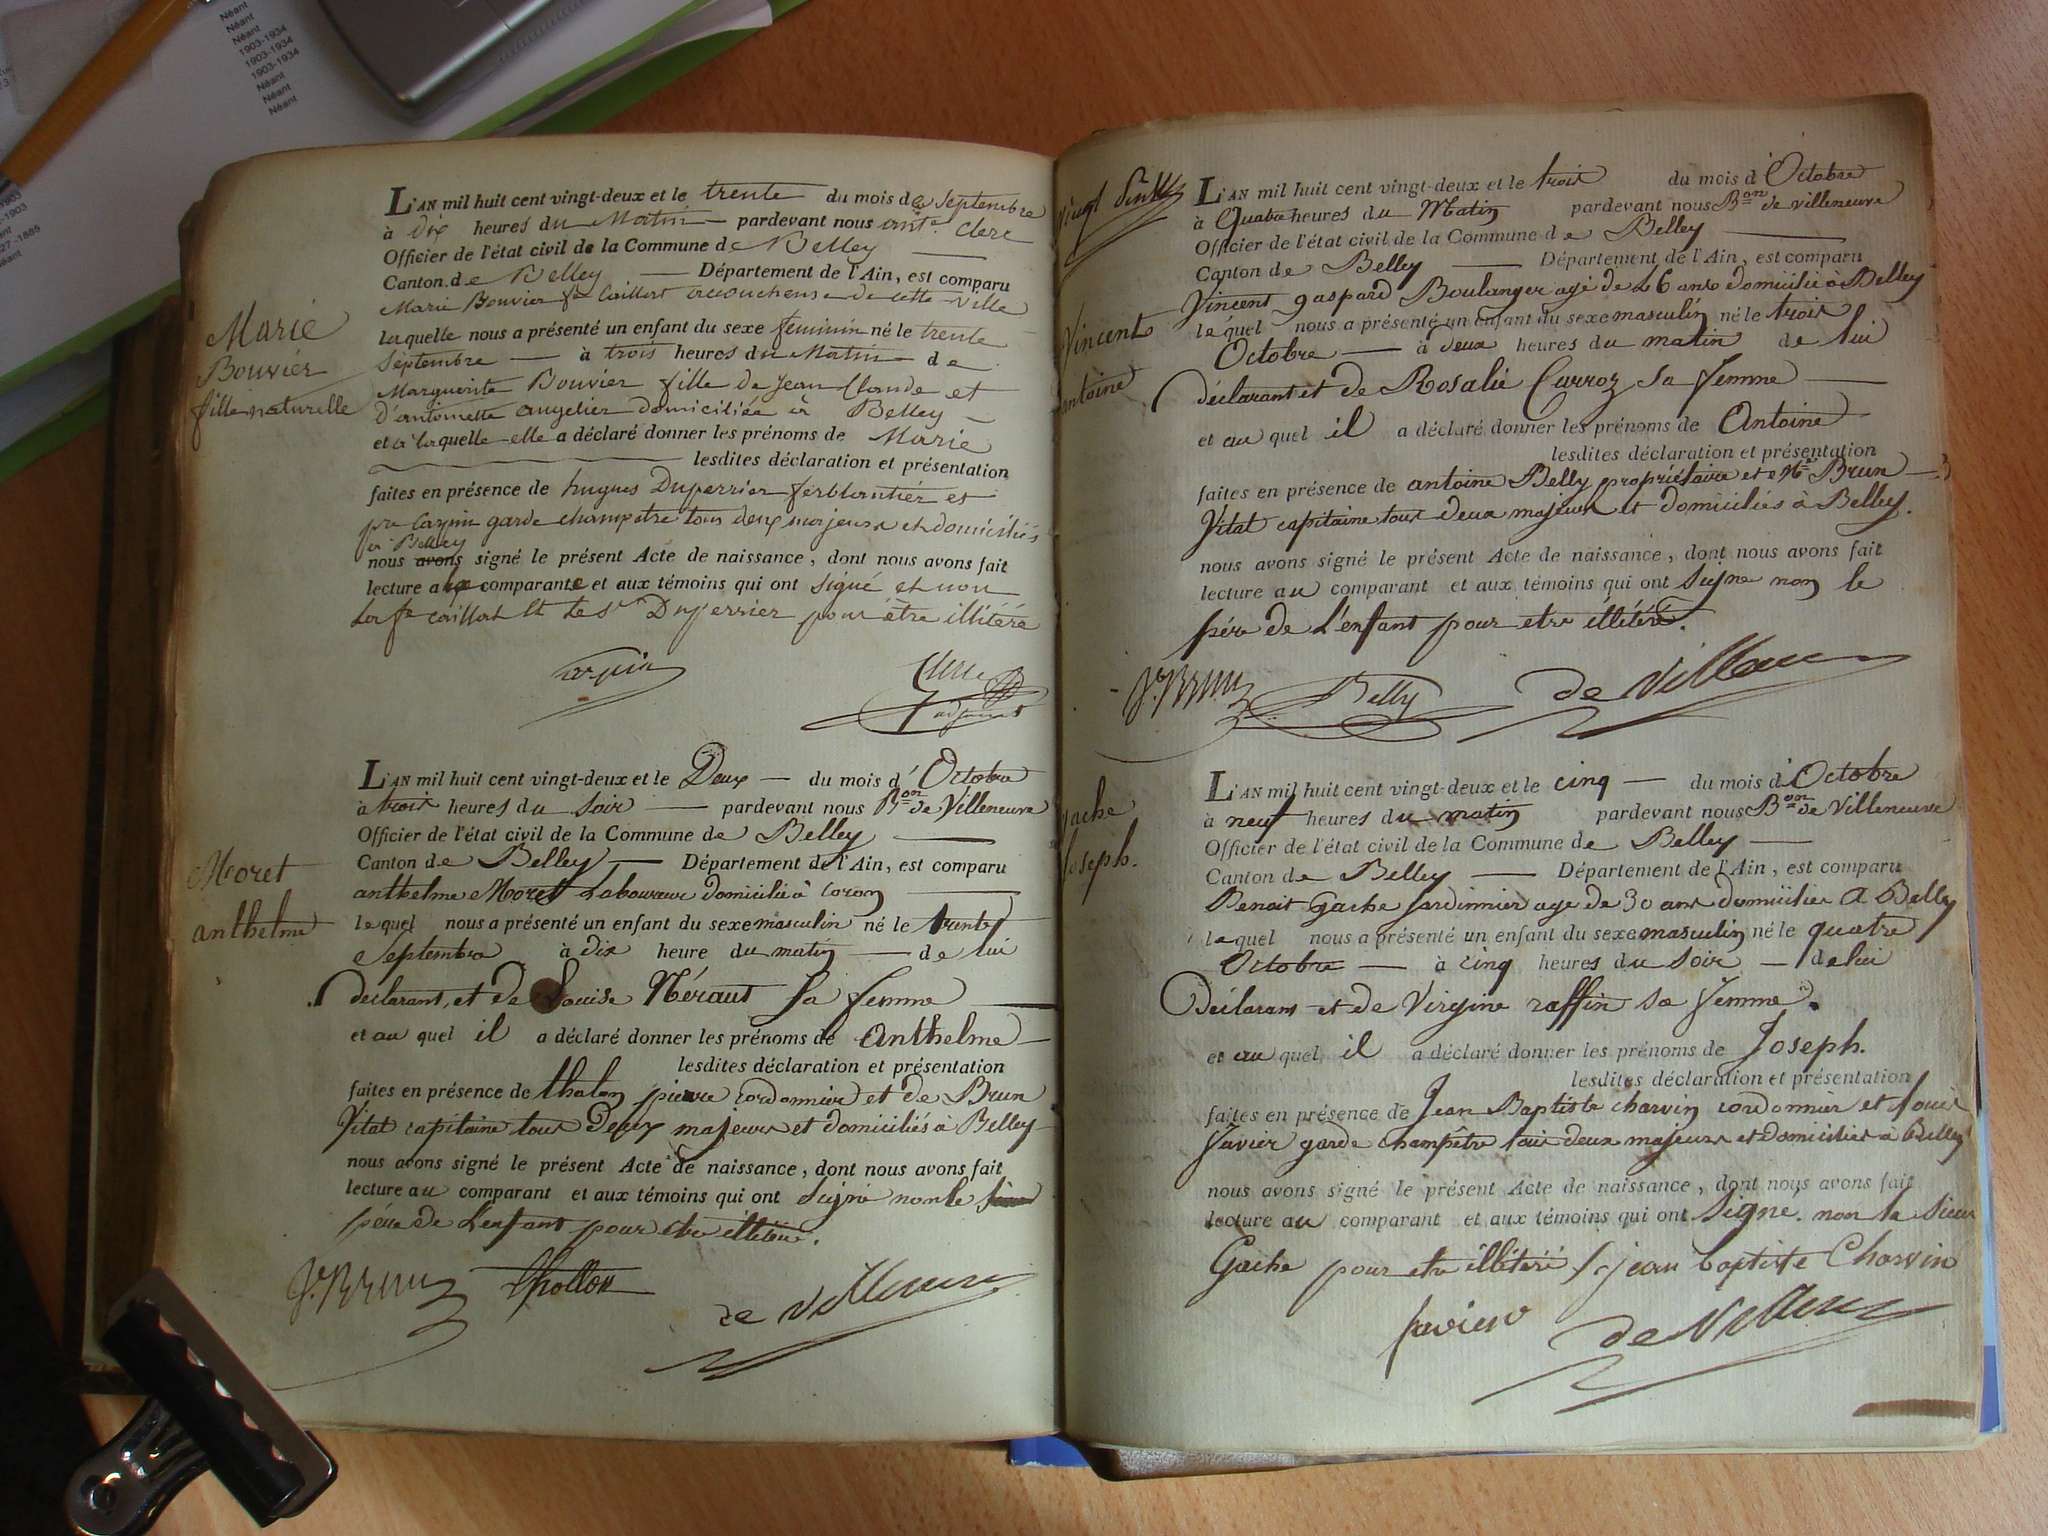 Néant
Néant
1903-1934
1903-1934
1903-1934
Néant
Néant
Néant
-1885
Marie
Bouvier
fille naturelle
L'AN mil huit cent vingt-deux et le trente du mois de Septembre
à dix heures du Matin pardevant nous Clerc
Officier de l'état civil de la Commune de Belley
Canton de Belley Département de l'Ain, est comparu
Marie Bouvier fe Caillot accoucheuse de cette Ville
laquelle nous a présenté un enfant du sexe feminin né le trente
Septembre à trois heures du Matin de
Marguerite Bouvier fille de Jean Claude et
D'antoinette augelier domiciliée à Belley
et à laquelle elle a déclaré donner les prénoms de Marie
lesdites déclaration et présentation
faites en présence de hugues Duperrier ferblantier et
pre Carpin garde champetre tous deux majeurs et domiciliés
à Belley
nous avons signé le présent Acte de naissance, dont nous avons fait
lecture a la comparante et aux témoins qui ont signé et non
la fe Caillot et le Sr Duperrier pour être illitéré
Carpin
Clerc
adjoint
Moret
anthelme
L'AN mil huit cent vingt-deux et le Deux du mois d'Octobre
à trois heures du Soir pardevant nous Bon de Villeneuve
Officier de l'état civil de la Commune de Belley
Canton de Belley Département de l'Ain, est comparu
anthelme Moret Laboureur domicilié à Coron
le quel nous a présenté un enfant du sexe masculin né le trente
Septembre à dix heure du matin de lui
déclarant, et de Louise Néraut sa femme
et au quel il a déclaré donner les prénoms de anthelme
lesdites déclaration et présentation
faites en présence de tholon pierre cordonnier et de Brun
Vital capitaine tous Deux majeurs et domiciliés à Belley
nous avons signé le présent Acte de naissance, dont nous avons fait
lecture au comparant et aux témoins qui ont Signé non le
père de L'enfant pour etre illitéré.
Vl. Brun thollon de Villeneuve
Vincent
antoine
L'AN mil huit cent vingt-deux et le trois du mois d'Octobre
à Quatre heures du Matin pardevant nous Bon de Villeneuve
Officier de l'état civil de la Commune de Belley
Canton de Belley Département de l'Ain, est comparu
Vincent gaspard Boulanger agé de 26 ans domicilié à Belley
le quel nous a présenté un enfant du sexe masculin né le trois
Octobre à deux heures du matin de lui
déclarant et de Rosalie Carroz sa femme
et au quel il a déclaré donner les prénoms de Antoine
lesdites déclaration et présentation
faites en présence de antoine Belly propriétaire et Brun
Vital capitaine tous deux majeurs et domiciliés à Belley.
nous avons signé le présent Acte de naissance, dont nous avons fait
lecture au comparant et aux témoins qui ont signé non le
père de L'enfant pour etre illitéré.
Vl. Brun Belly de Villeneuve
gache
Joseph.
L'AN mil huit cent vingt-deux et le cinq du mois d'Octobre
à neuf heures du matin pardevant nous Bon de Villeneuve
Officier de l'état civil de la Commune de Belley
Canton de Belley Département de l'Ain, est comparu
Benoit Gache Jardinnier agé de 30 ans domicilié à Belley
le quel nous a présenté un enfant du sexe masculin né le quatre
Octobre à cinq heures du Soir de lui
Déclarant et de Virgine raffin sa femme.
et au quel il a déclaré donner les prénoms de Joseph.
lesdites déclaration et présentation
faites en présence de Jean Baptiste charvin cordonnier et Louis
Javier garde champêtre tous deux majeurs et domiciliés à Belley
nous avons signé le présent Acte de naissance, dont nous avons fait
lecture au comparant et aux témoins qui ont Signé. non le Sieur
Gache pour etre illitéré jean baptiste Charvin
Javier de Villeneuve